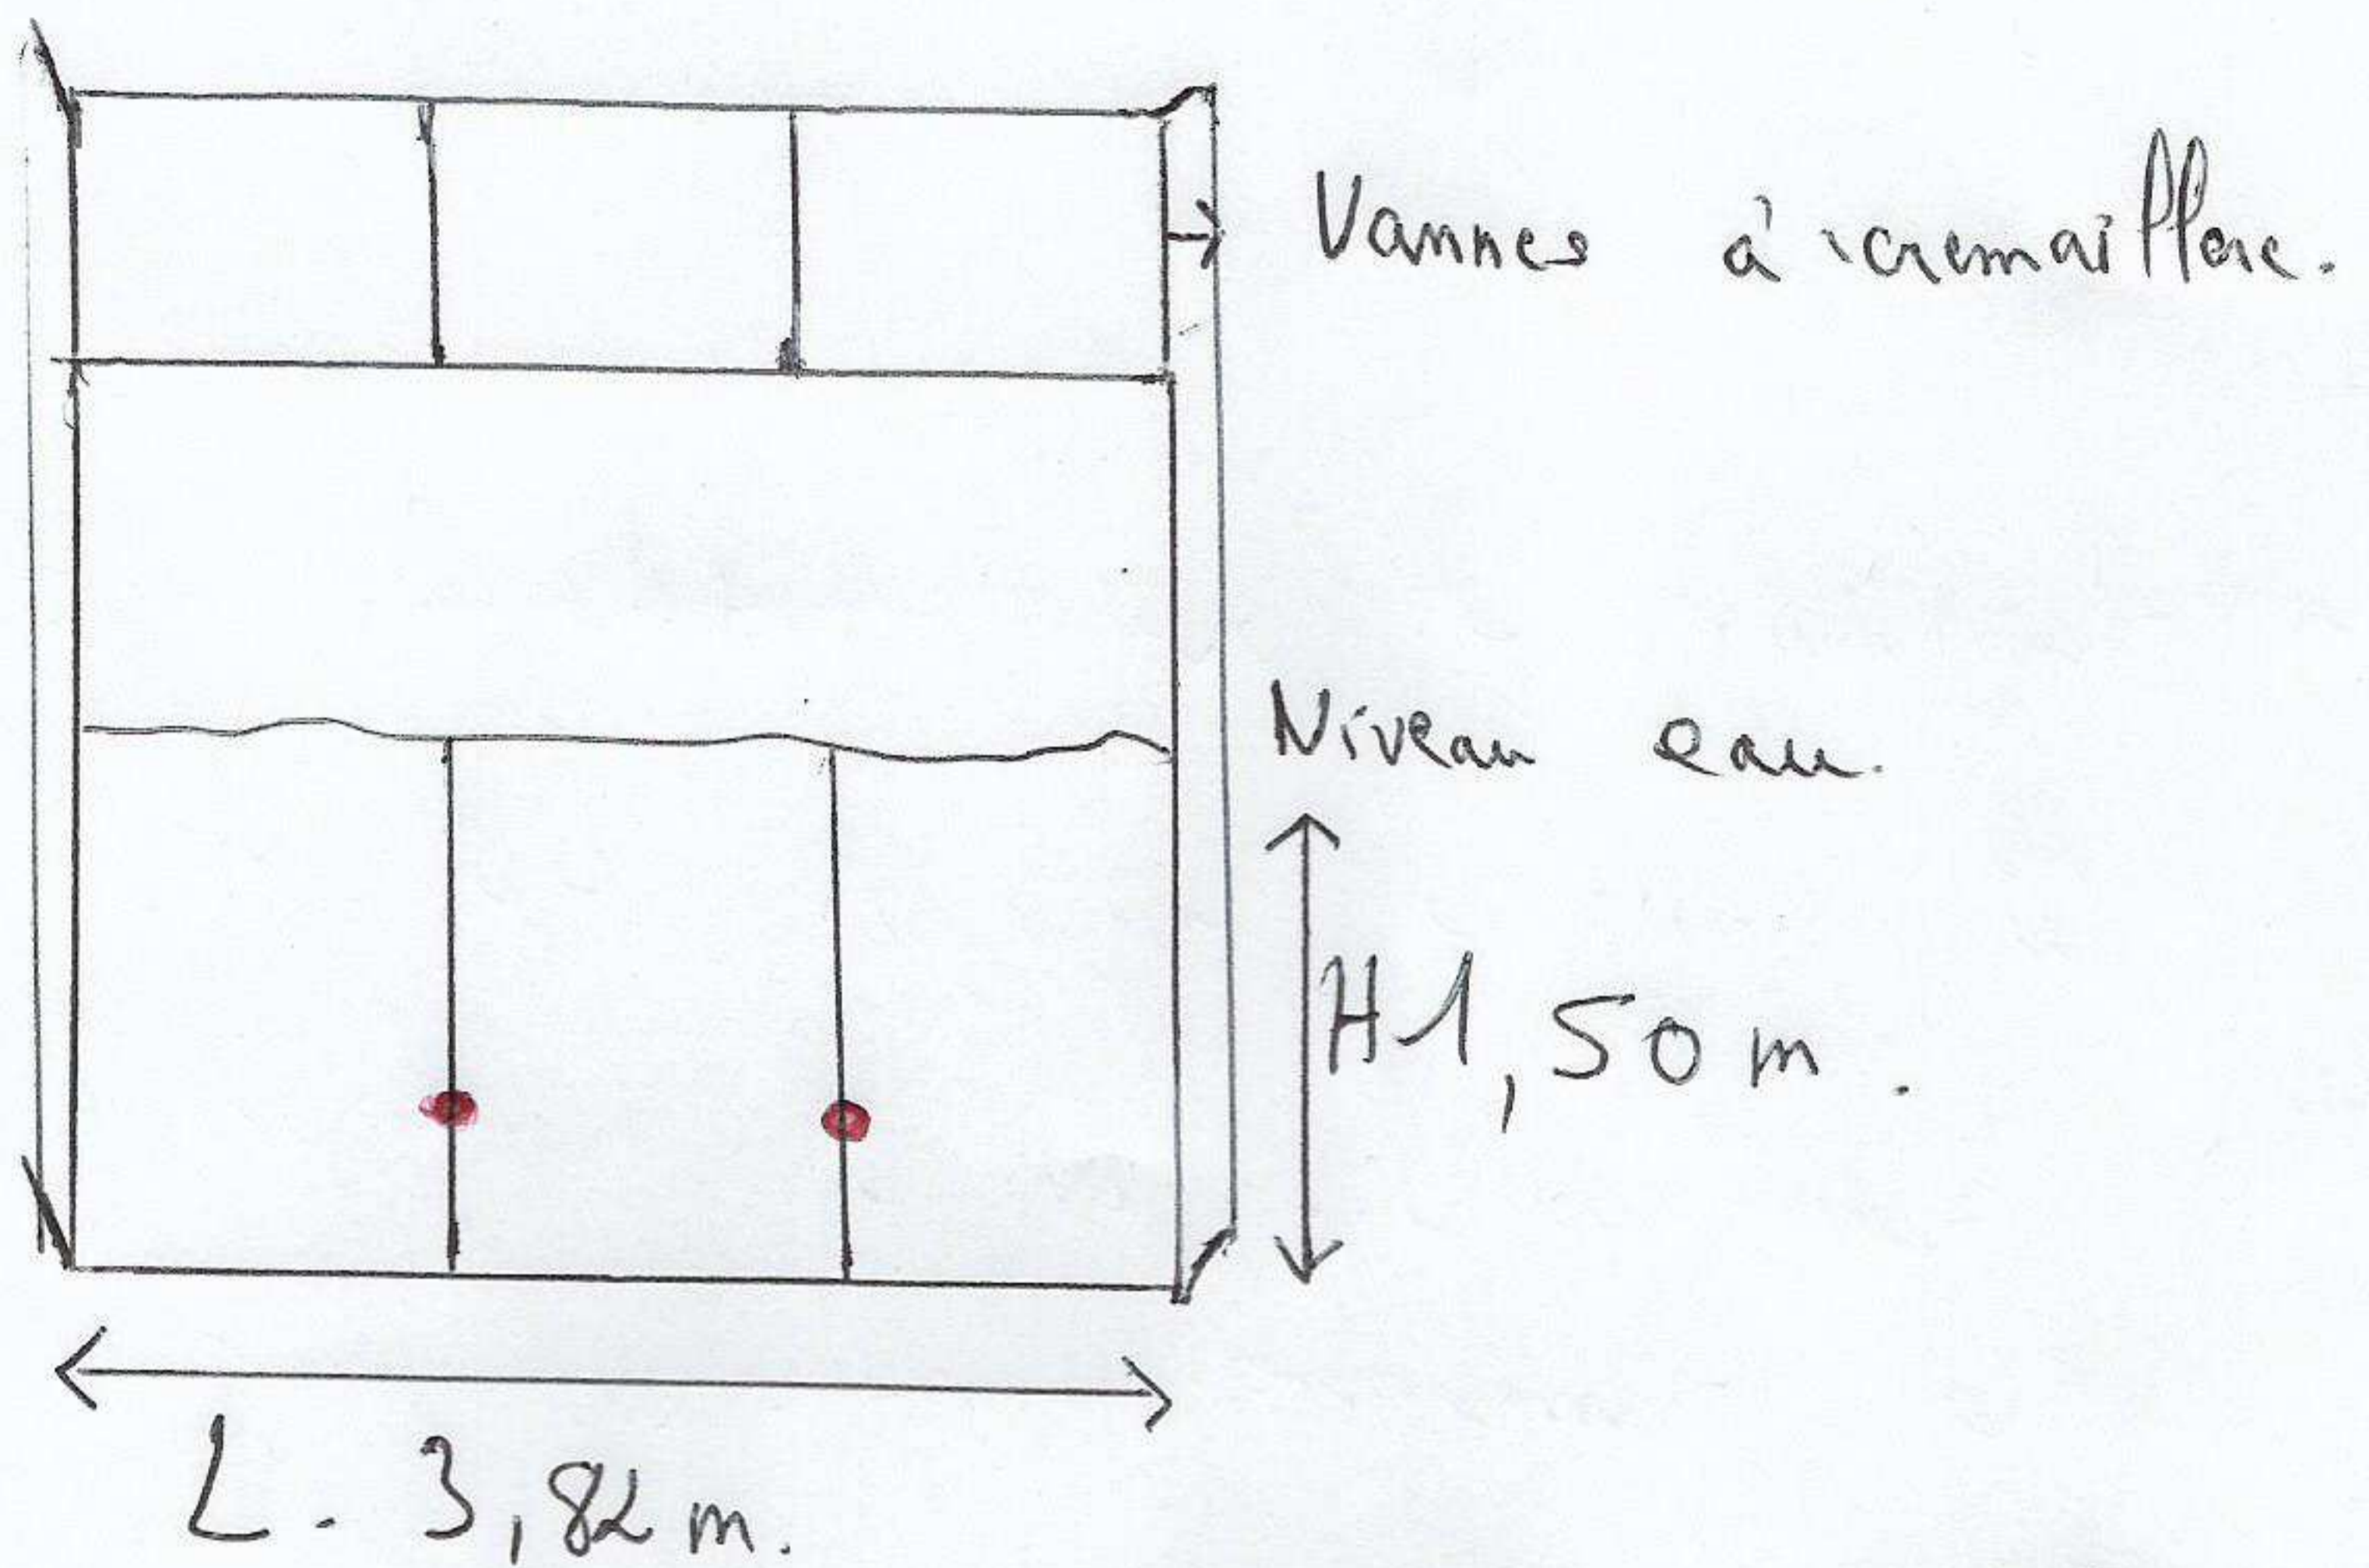 Vannes à cremaillère.
Niveau eau.
H1,50 m.
L. 3,82 m.